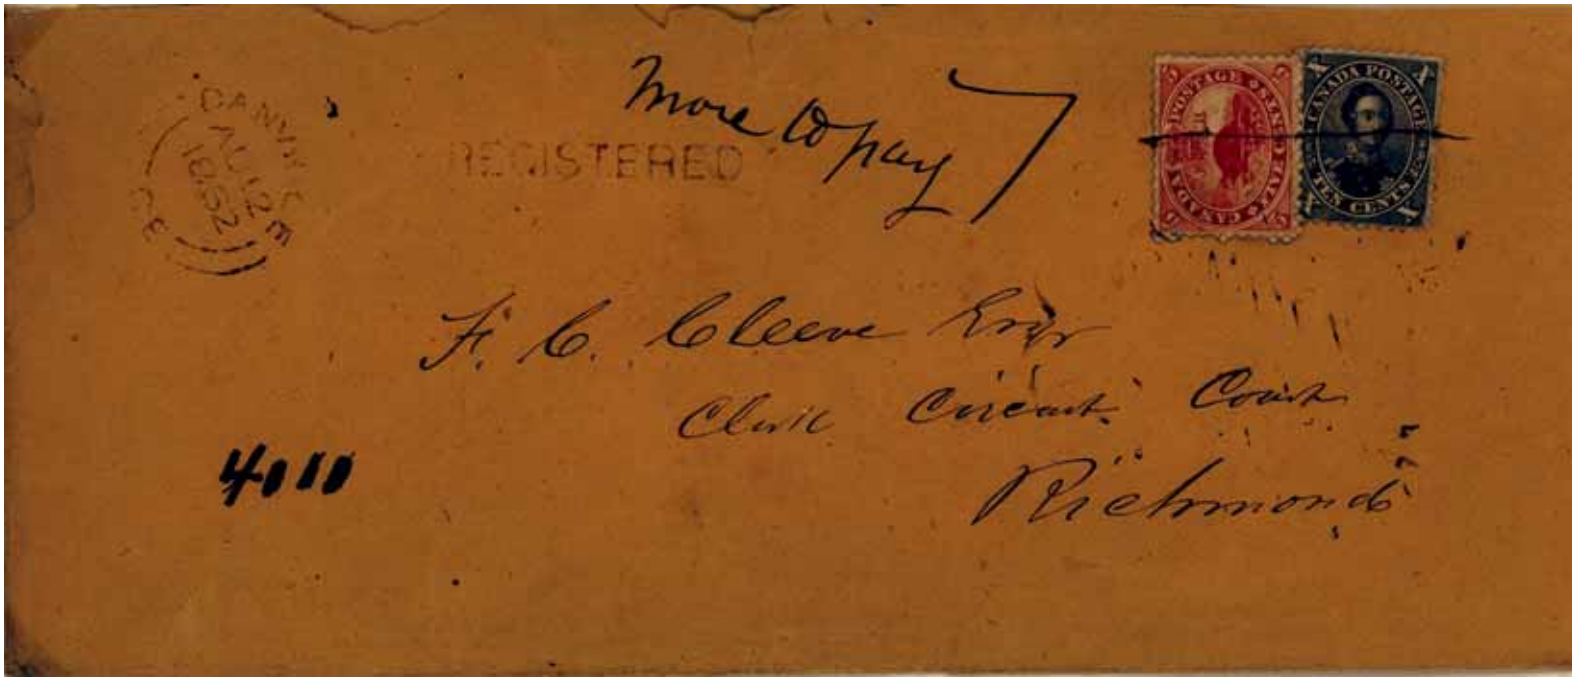 DANVILLE
AU 12
1862
CE
REGISTERED
More to pay 7
CANADA POSTAGE
FIVE CENTS
5
5
5
5
CANADA POSTAGE
TEN CENTS
X
X
X
X
F. C. Cleeve Esqr
Clerk Circuit Court
Richmond
4010